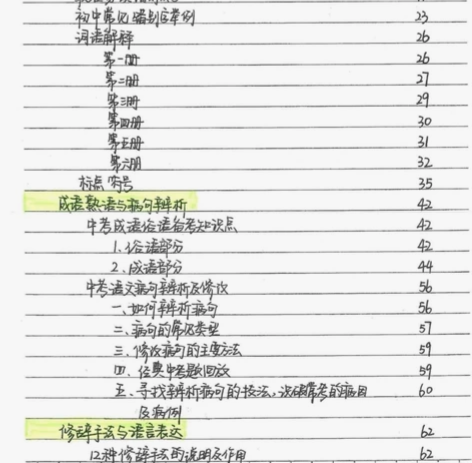 初中常见错别字举例 23
词语解释 26
第一册 26
第二册 27
第三册 29
第四册 30
第五册 31
第六册 32
标点符号 35
成语熟语与病句辨析 42
中考成语俗语备考知识点 42
1.俗语部分 42
2.成语部分 44
中考语文病句辨析及修改 56
一、如何辨析病句 56
二、病句的常见类型 57
三、修改病句的主要方法 59
四、经典中考题回放 59
五、寻找辨析病句的技法,识破常考的病因 60
及病例
修辞手法与语言表达 62
12种修辞手法的说明及作用 62